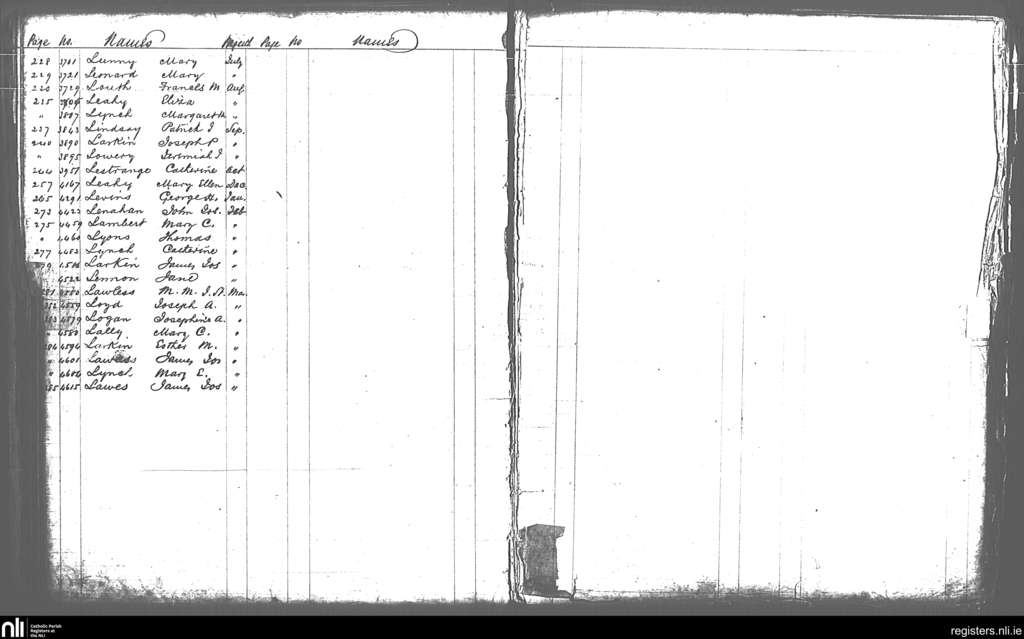 Page No. Names Page No Names
228 3701 Lunny Mary July
229 3721 Leonard Mary "
3729 Louth Francis M Aug.
235 Leahy Eliza "
" 3887 Lynch Margaret "
3843 Lindsay Patrick J Sep.
240 3890 Larkin Joseph P. "
" 3895 Lowery Jeremiah J "
244 3951 Lestrange Catherine Oct
257 4167 Leahy Mary Ellen Dec.
265 4291 Levins George H. Jan.
273 4422 Lenahan John Jos. Feb
275 4459 Lambert Mary C. "
" 4460 Lyons Thomas "
277 4483 Lynch Catherine "
Larkin James Jos "
4522 Lennon Jane "
Lawless M. M. J. Mar.
4559 Loyd Joseph A. "
4579 Logan Josephine A. "
4580 Lally Mary C. "
4594 Larkin Esther M. "
" 4601 Lawless James Jos "
" 4604 Lynch Mary E. "
4615 Lawes James Jos "
nli Catholic Parish
Registers at
the NLI
registers.nli.ie